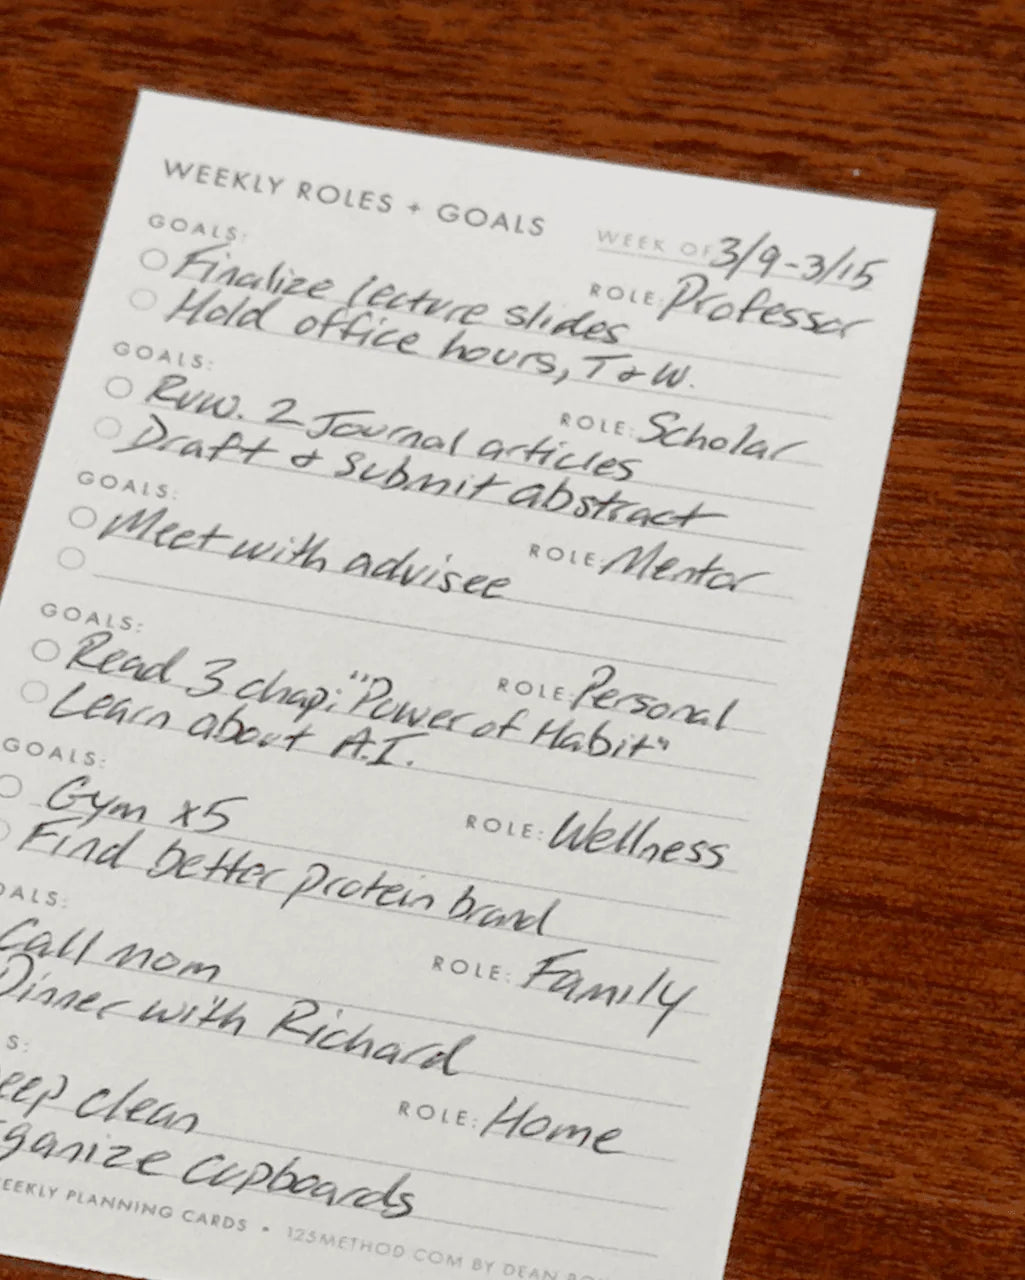 WEEKLY ROLES + GOALS
WEEK OF 3/9-3/15
GOALS:
ROLE: Professor
Finalize lecture slides
Hold office hours, T & W.
GOALS:
ROLE: Scholar
Rvw. 2 Journal articles
Draft & submit abstract
GOALS:
ROLE: Mentor
Meet with advisee
GOALS:
ROLE: Personal
Read 3 chap: "Power of Habit"
Learn about A.I.
GOALS:
ROLE: Wellness
Gym x5
Find better protein brand
OALS:
ROLE: Family
Call mom
Dinner with Richard
S:
ROLE: Home
eep clean
ganize cupboards
EEKLY PLANNING CARDS • 123METHOD.COM BY DEAN